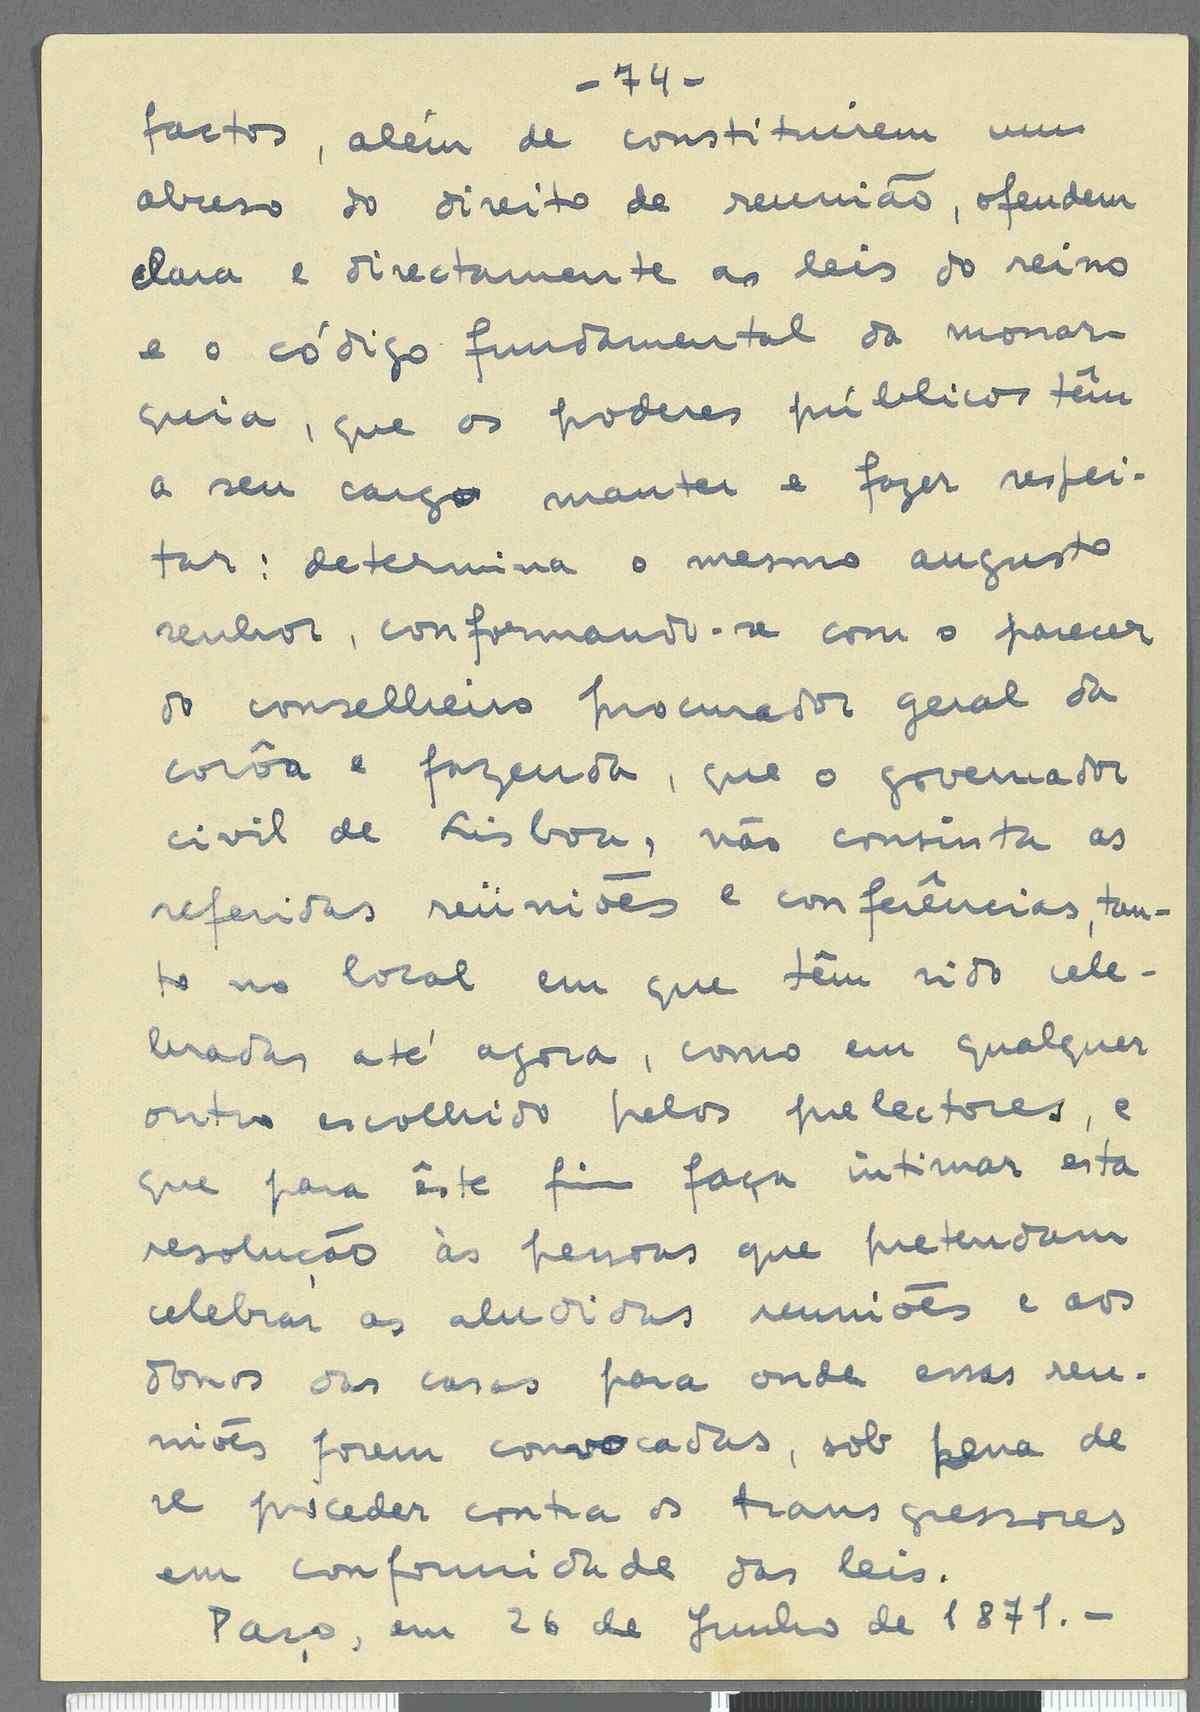 -74-
factos, além de constituirem um
abuso do direito de reunião, ofendem
clara e directamente as leis do reino
e o código fundamental da monar-
quia, que os poderes públicos têm
a seu cargo manter e fazer respei-
tar: determina o mesmo augusto
senhor, conformando-se com o parecer
do conselheiro procurador geral da
corôa e fazenda, que o governador
civil de Lisboa, não consinta as
referidas reüniões e conferências, tan-
to no local em que têm sido cele-
bradas até agora, como em qualquer
outro escolhido pelos prelectores, e
que para êste fim faça intimar esta
resolução às pessoas que pretendam
celebrar as aludidas reuniões e aos
donos das casas para onde essas reu-
niões forem convocadas, sob pena de
se proceder contra os transgressores
em conformidade das leis.
Paço, em 26 de Junho de 1871. -